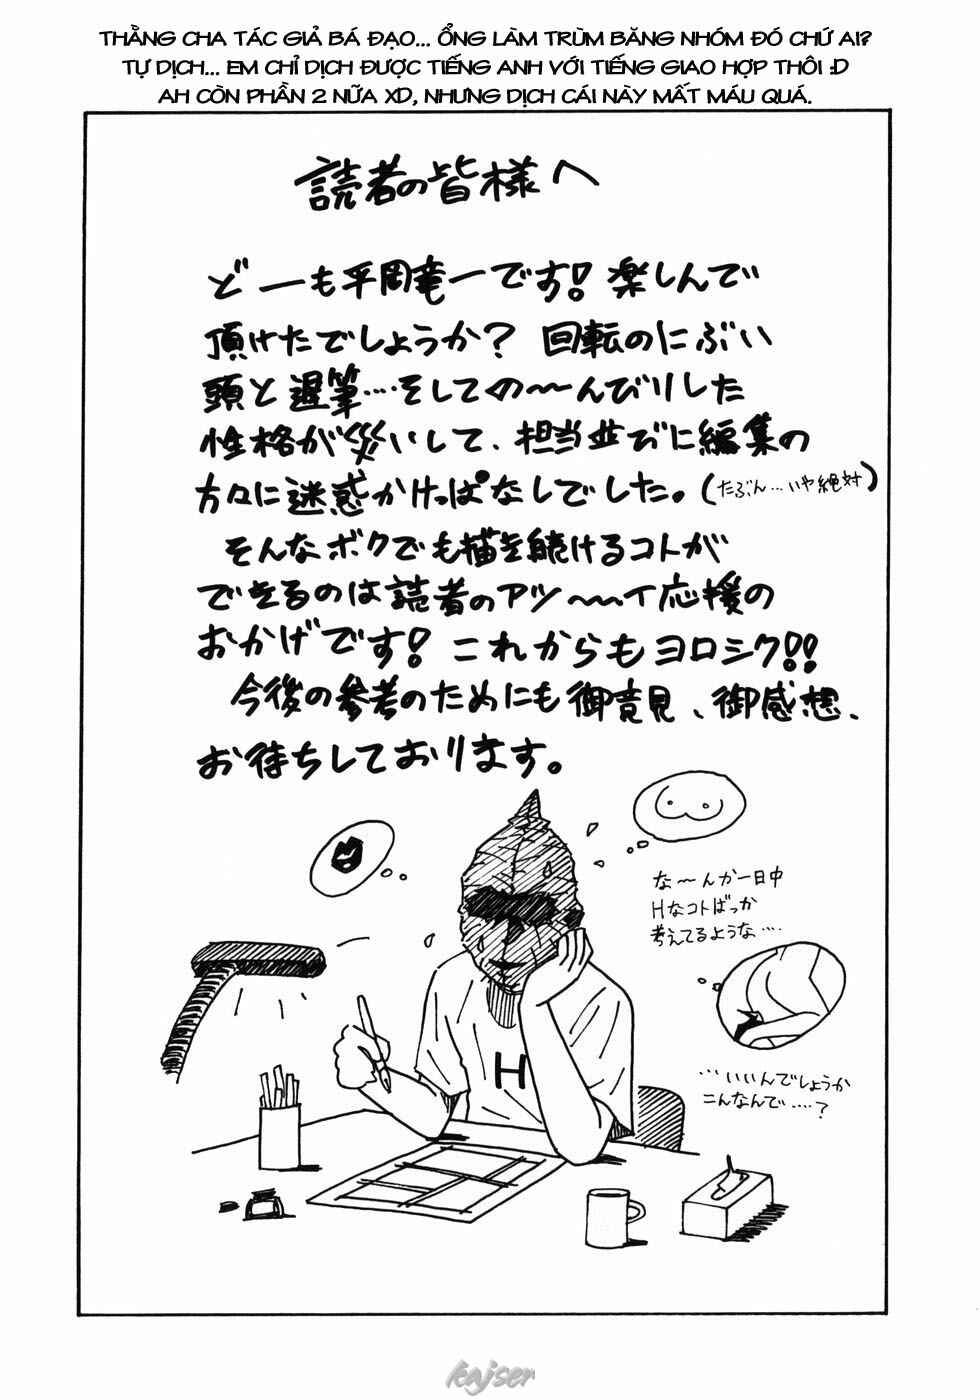 THẰNG CHA TÁC GIẢ BÁ ĐẠO... ỔNG LÀM TRÙM BĂNG NHÓM ĐÓ CHỨ AI?
TỰ DỊCH... EM CHỈ DỊCH ĐƯỢC TIẾNG ANH VỚI TIẾNG GIAO HỢP THÔI :D
AH CÒN PHẦN 2 NỮA XD, NHƯNG DỊCH CÁI NÀY MẤT MÁU QUÁ.
読者の皆様へ
どーも平岡竜一です!楽しんで
頂けたでしょうか?回転のにぶい
頭と遅筆…そしての〜んびりした
性格が災いして、担当並びに編集の
方々に迷惑かけっぱなしでした。(たぶん…いや絶対)
そんなボクでも描き続けるコトが
できるのは読者のアツ〜イ応援の
おかげです!これからもヨロシク!!
今後の参考のためにも御意見、御感想、
お待ちしております。
な〜んか一日中
Hなコトばっか
考えてるような…
…いいんでしょうか
こんなんで……?
H
kajser